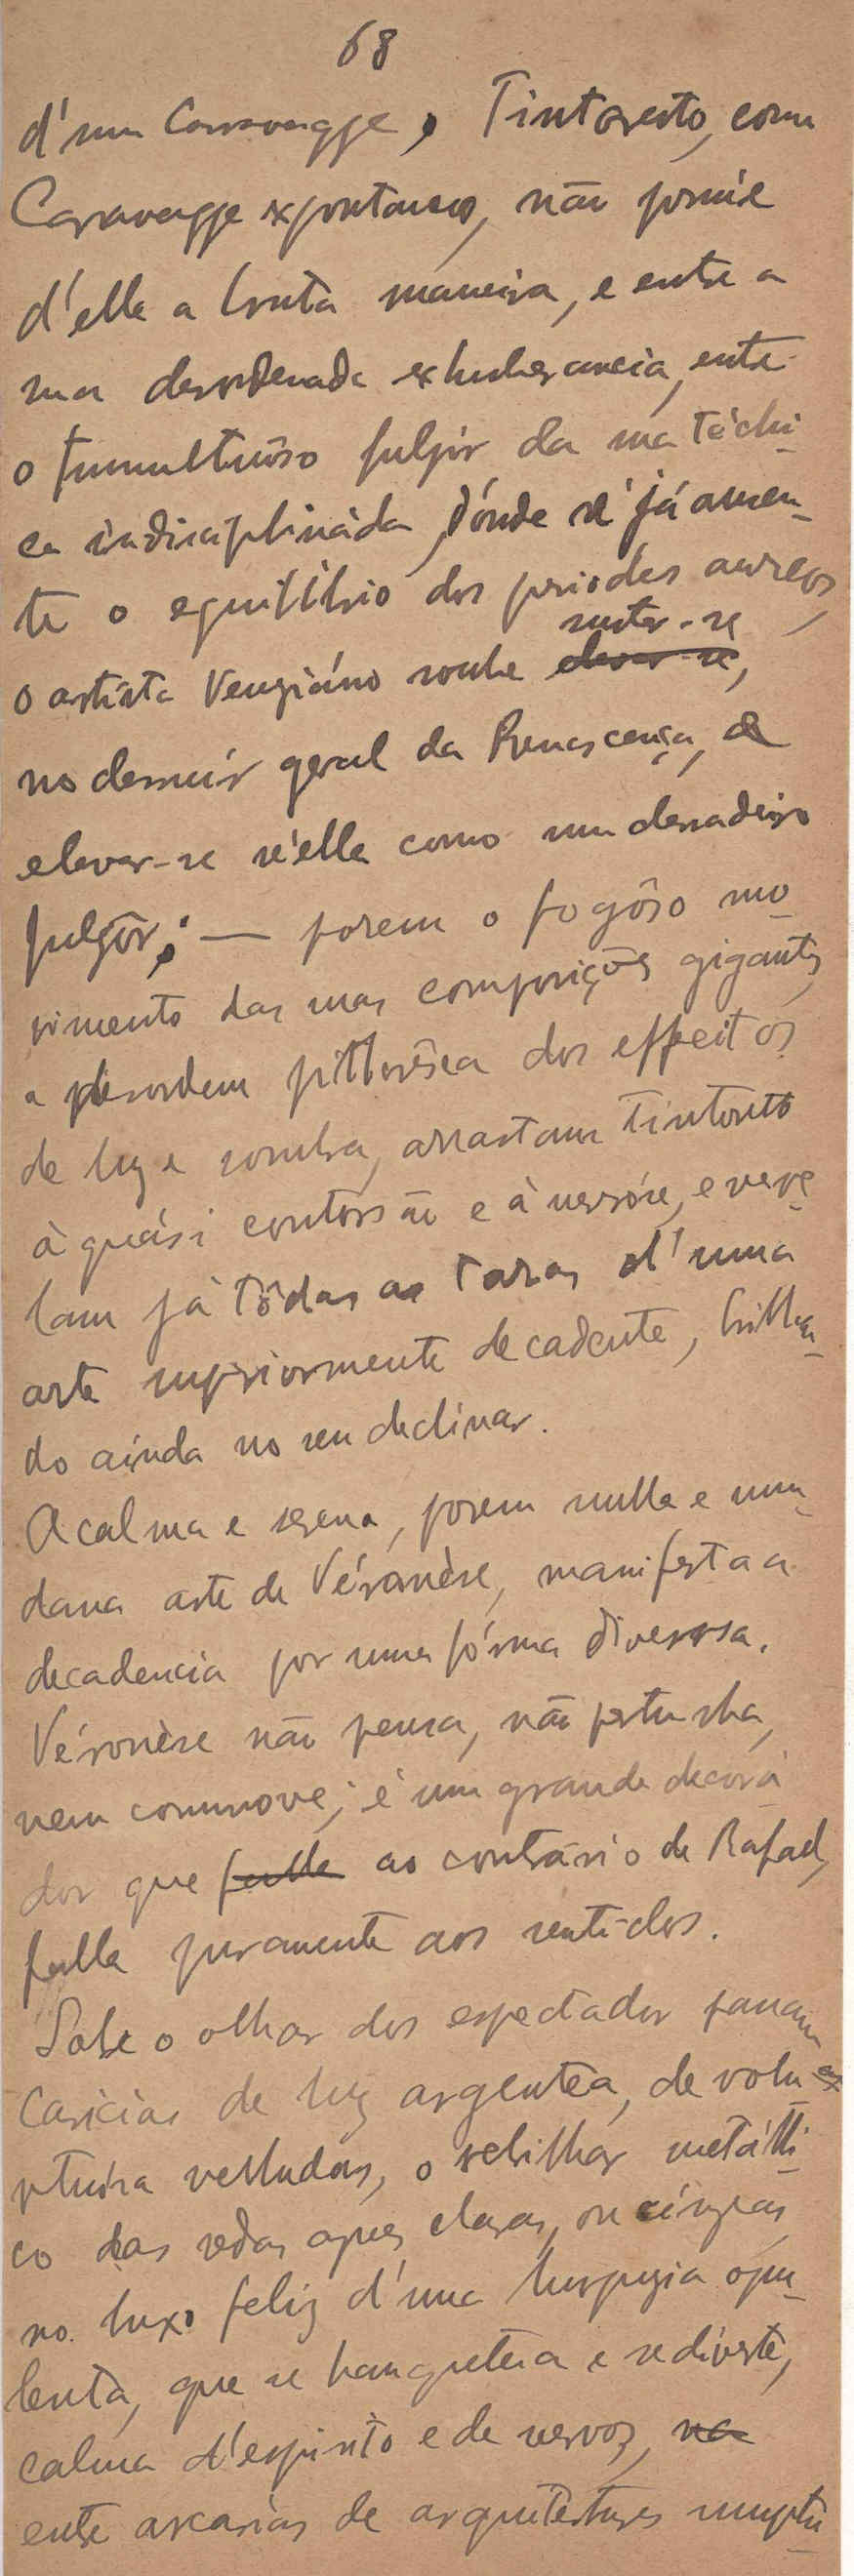 68
d'um Caravagge, Tintoreto, como
Caravagge expontaneo, não possúe
d'elle a bruta maneira, e entre a
sua desordenada exhuberancia, entre
o tumultuôso fulgir da sua téchi-
ca indisciplináda, dónde se' já ausen-
te o equilíbrio dos periodos aureos,
suster-se
o artista Veneziáno soube elevar-se,
no derruir geral da Renascença, e
elevar-se n'elle como um derradeiro
fulgôr; — porem o fogôso mo-
vimento das suas composições gigantes,
a desordem pittorêsca dos effeitos
de luz e sombra, arrastam Tintoreto
à quási contorsão e à nevróse, e reve-
lam já tôdas as taras d'uma
arte superiormente decadente, brilhan-
do ainda no seu declinar.
A calma e serena, porem nulla e mun-
dana arte de Véronèse, manifesta a
decadencia por uma fórma diversa.
Véronèse não pensa, não perturba,
nem commove; é um grande decora-
dor que falla ao contrário de Rafael,
falla puramente aos sentidos.
Sobre o olhar dos espectador passam as
caricias de luz argentea, de volu-
ptuósa velludos, o rebrilhar metálli-
co das sedas claras, ou
no luxo feliz d'uma burguezia opu-
lenta, que se banquetea e se diverte,
calma d'espirito e de nervos, na
entre arcarias de arquitecturas sumptu-